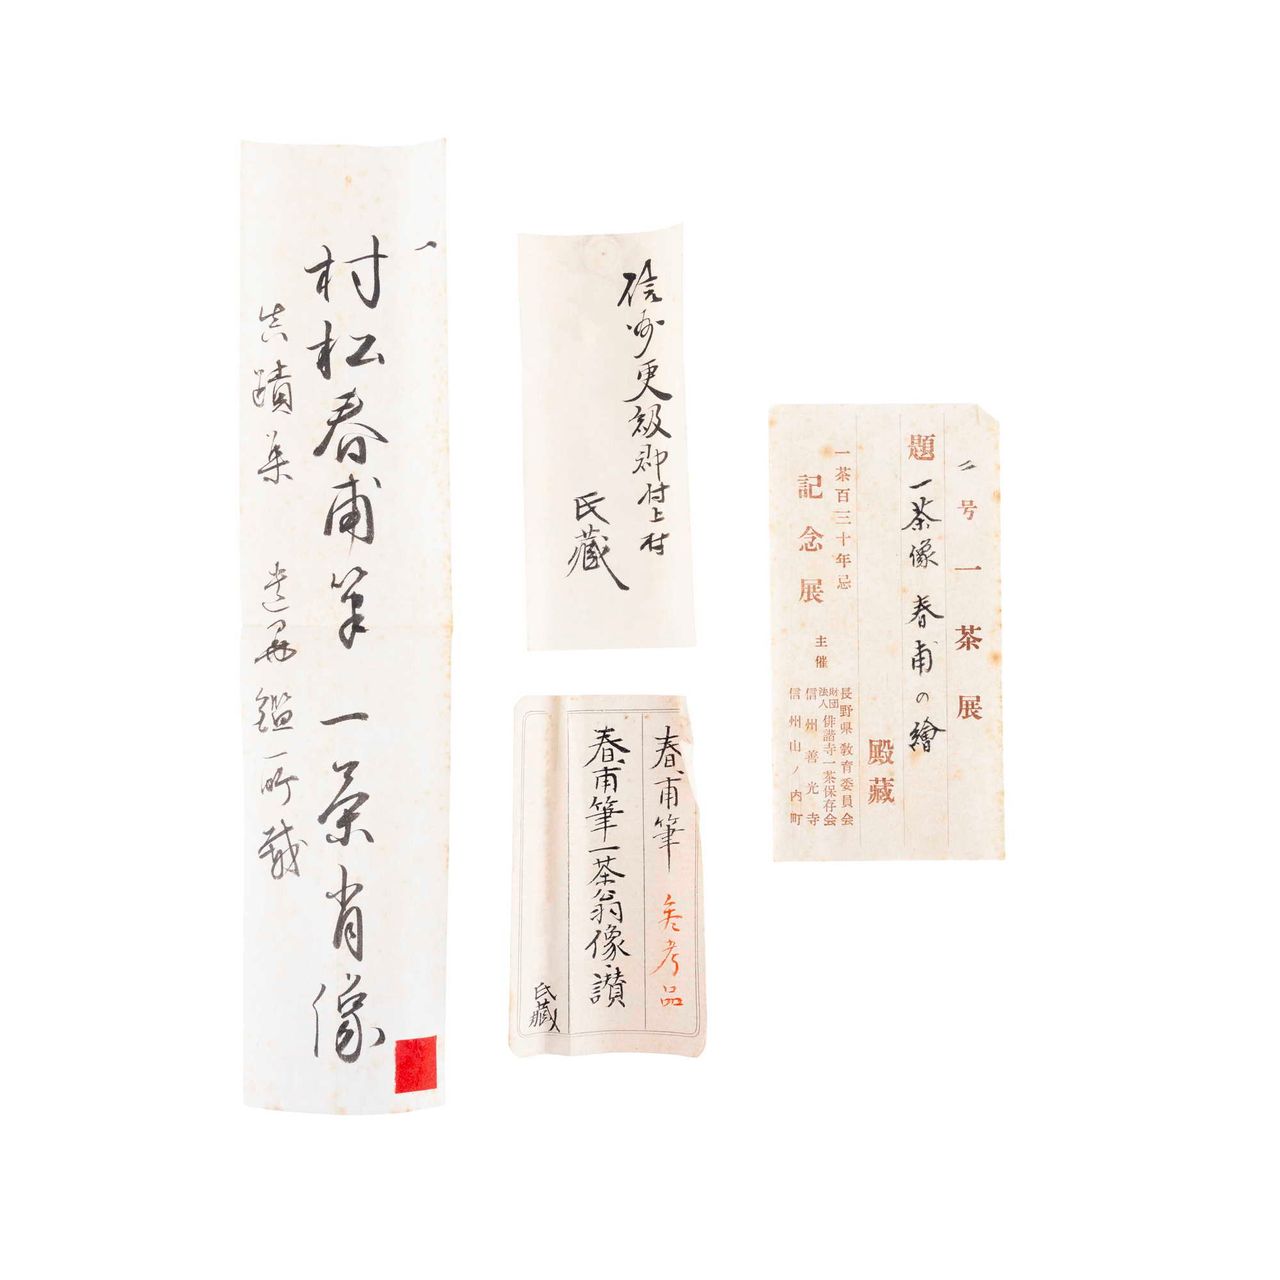 一
村松春甫筆 一茶肖像
真蹟集 遺墨鑑所載
信州更級郡村上村
氏藏
春甫筆 参考品
春甫筆一茶翁像・讃
氏藏
二号 一茶展
題 一茶像 春甫の繪
殿藏
一茶百三十年忌
記念展
主催
長野県教育委員会
財団法人俳諧寺一茶保存会
信州善光寺
信州山ノ内町